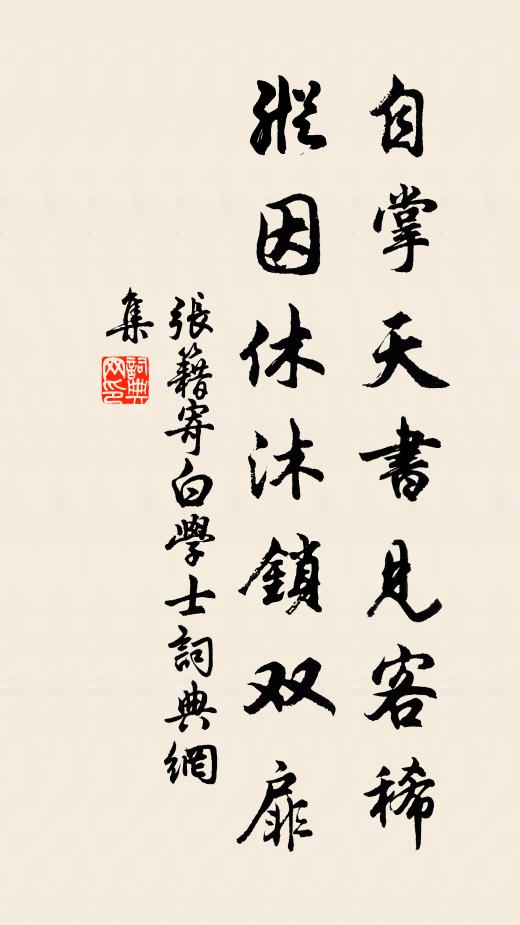 自掌天書見客稀
縱因休沐鎖双扉
張籍寄白學士詞典網
集
詞典
网印